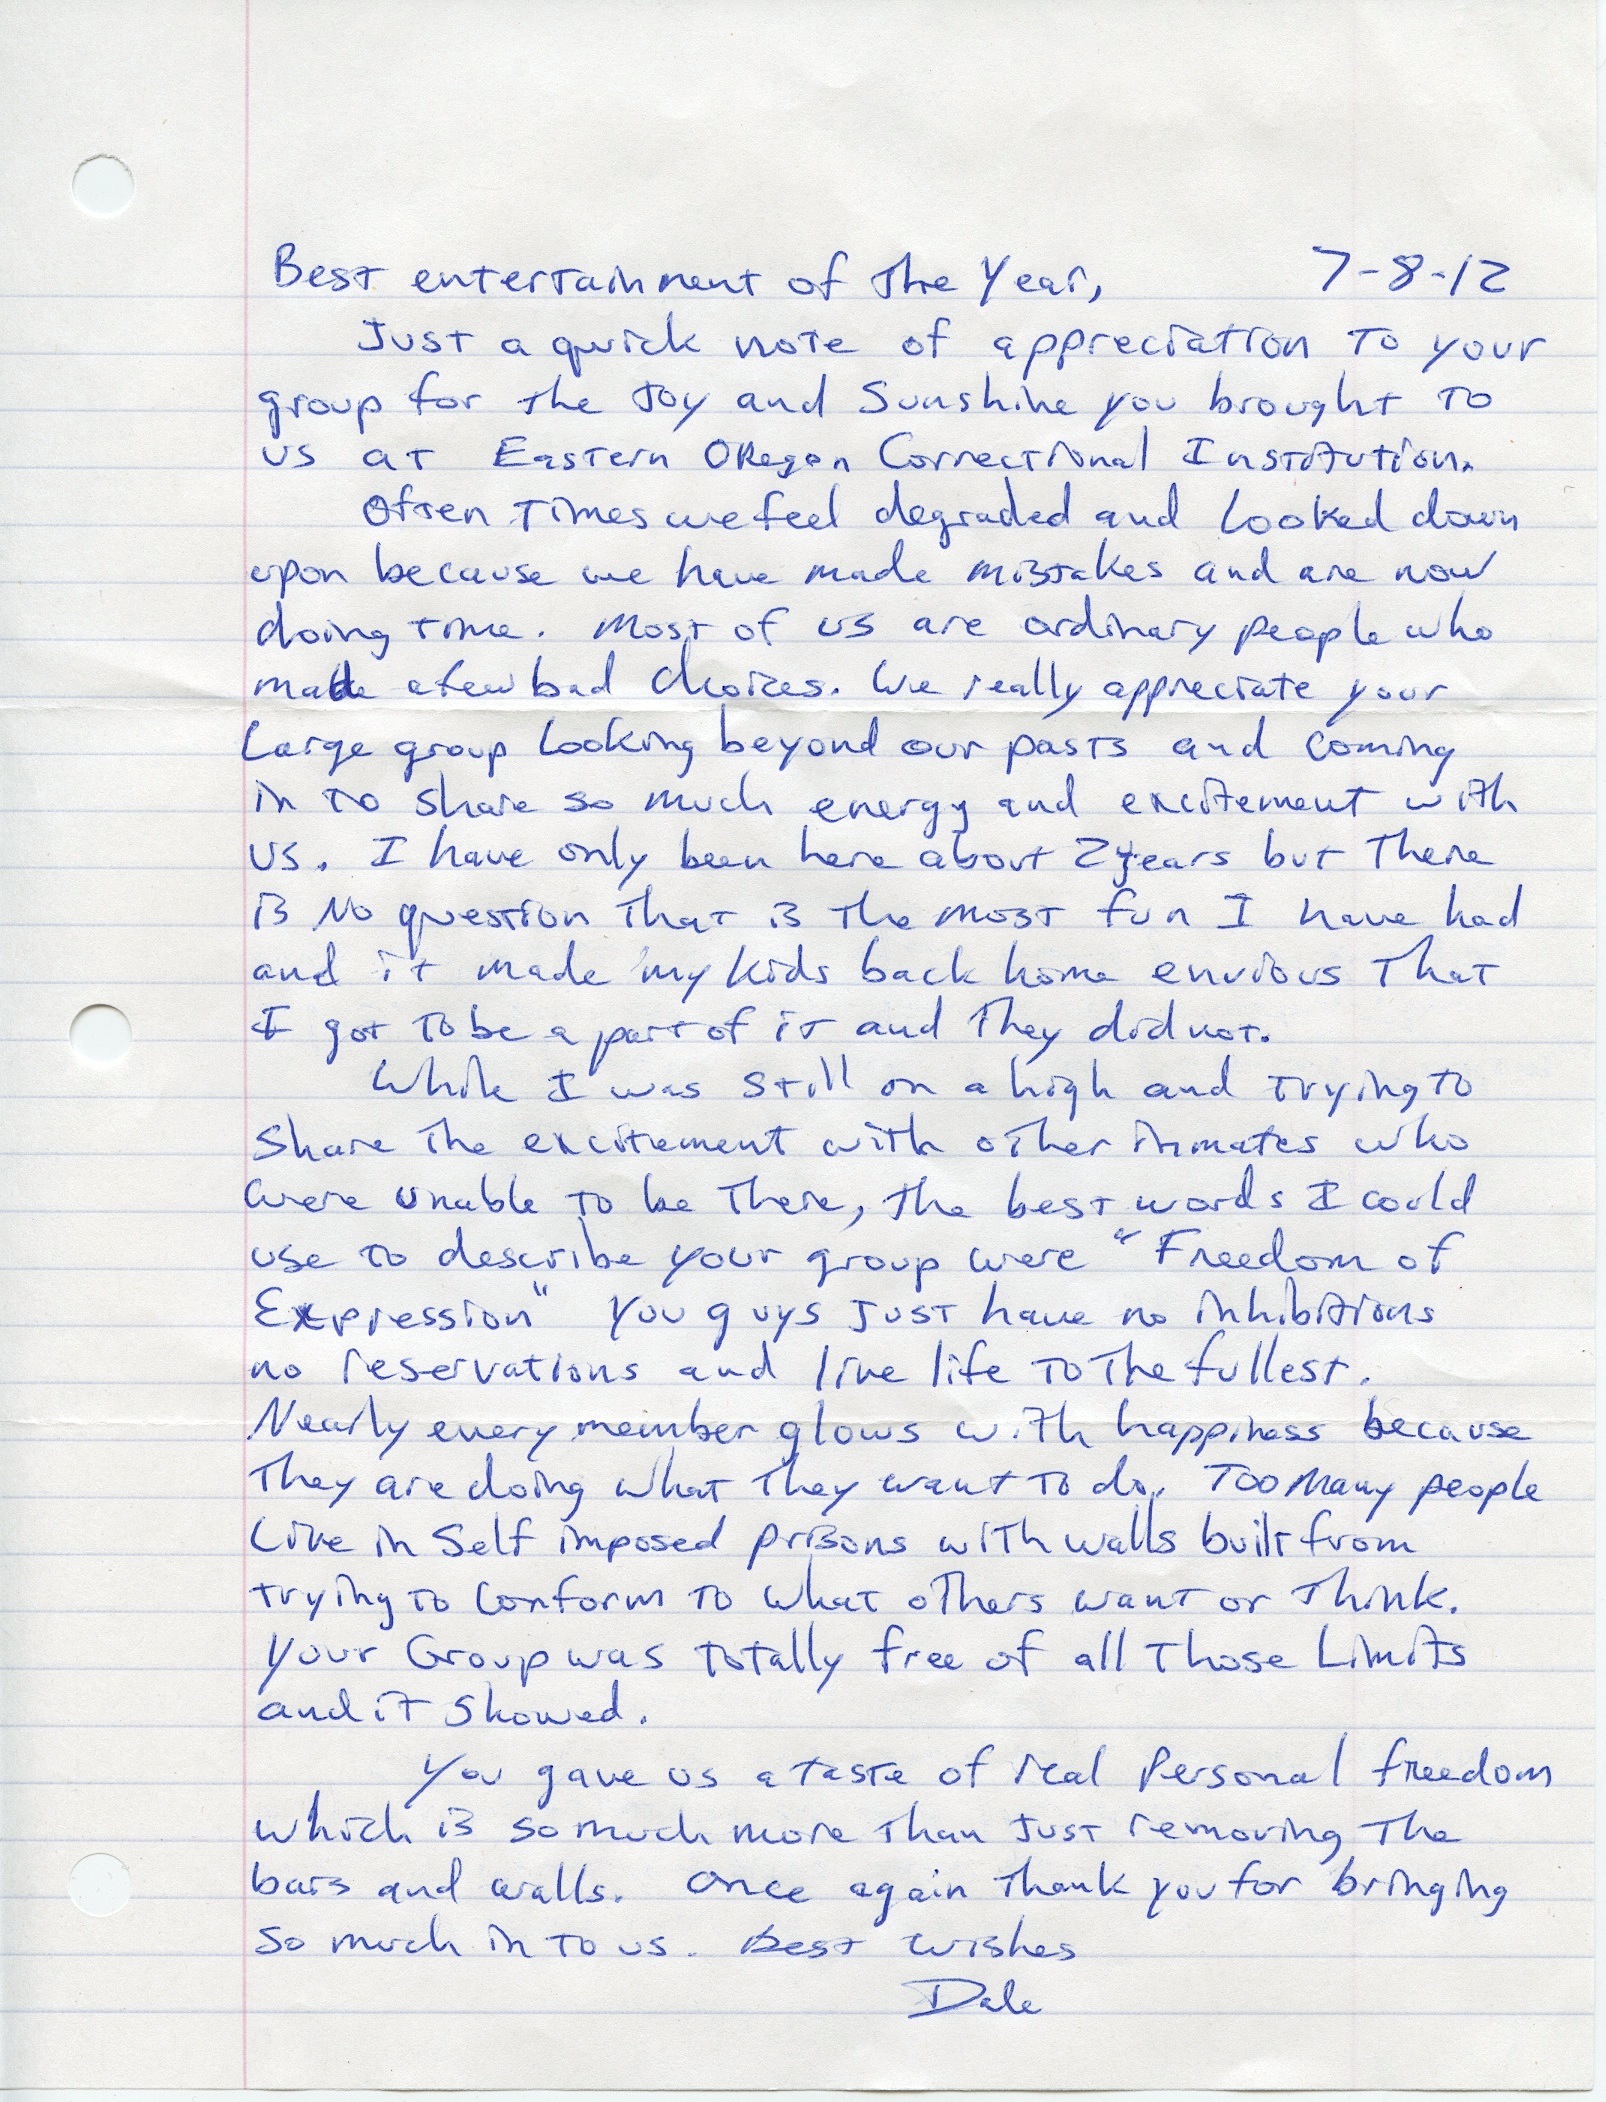 Best entertainment of the Year, 7-8-12
Just a quick note of appreciation to your
group for the Joy and Sunshine you brought to
us at Eastern Oregon Correctional Institution.
Often times we feel degraded and looked down
upon because we have made mistakes and are now
doing time. Most of us are ordinary people who
made a few bad choices. We really appreciate your
large group looking beyond our pasts and coming
in to share so much energy and excitement with
us. I have only been here about 2 years but there
is no question that is the most fun I have had
and it made my kids back home envious that
I got to be a part of it and they did not.
While I was still on a high and trying to
share the excitement with other inmates who
were unable to be there, the best words I could
use to describe your group were "Freedom of
Expression" You guys just have no inhibitions
no reservations and live life to the fullest.
Nearly every member glows with happiness because
they are doing what they want to do. Too many people
Live in Self imposed prisons with walls built from
trying to conform to what others want or think.
Your Group was totally free of all those Limits
and it showed.
You gave us a taste of real Personal freedom
which is so much more than just removing the
bars and walls. Once again thank you for bringing
so much in to us. Best wishes
Dale